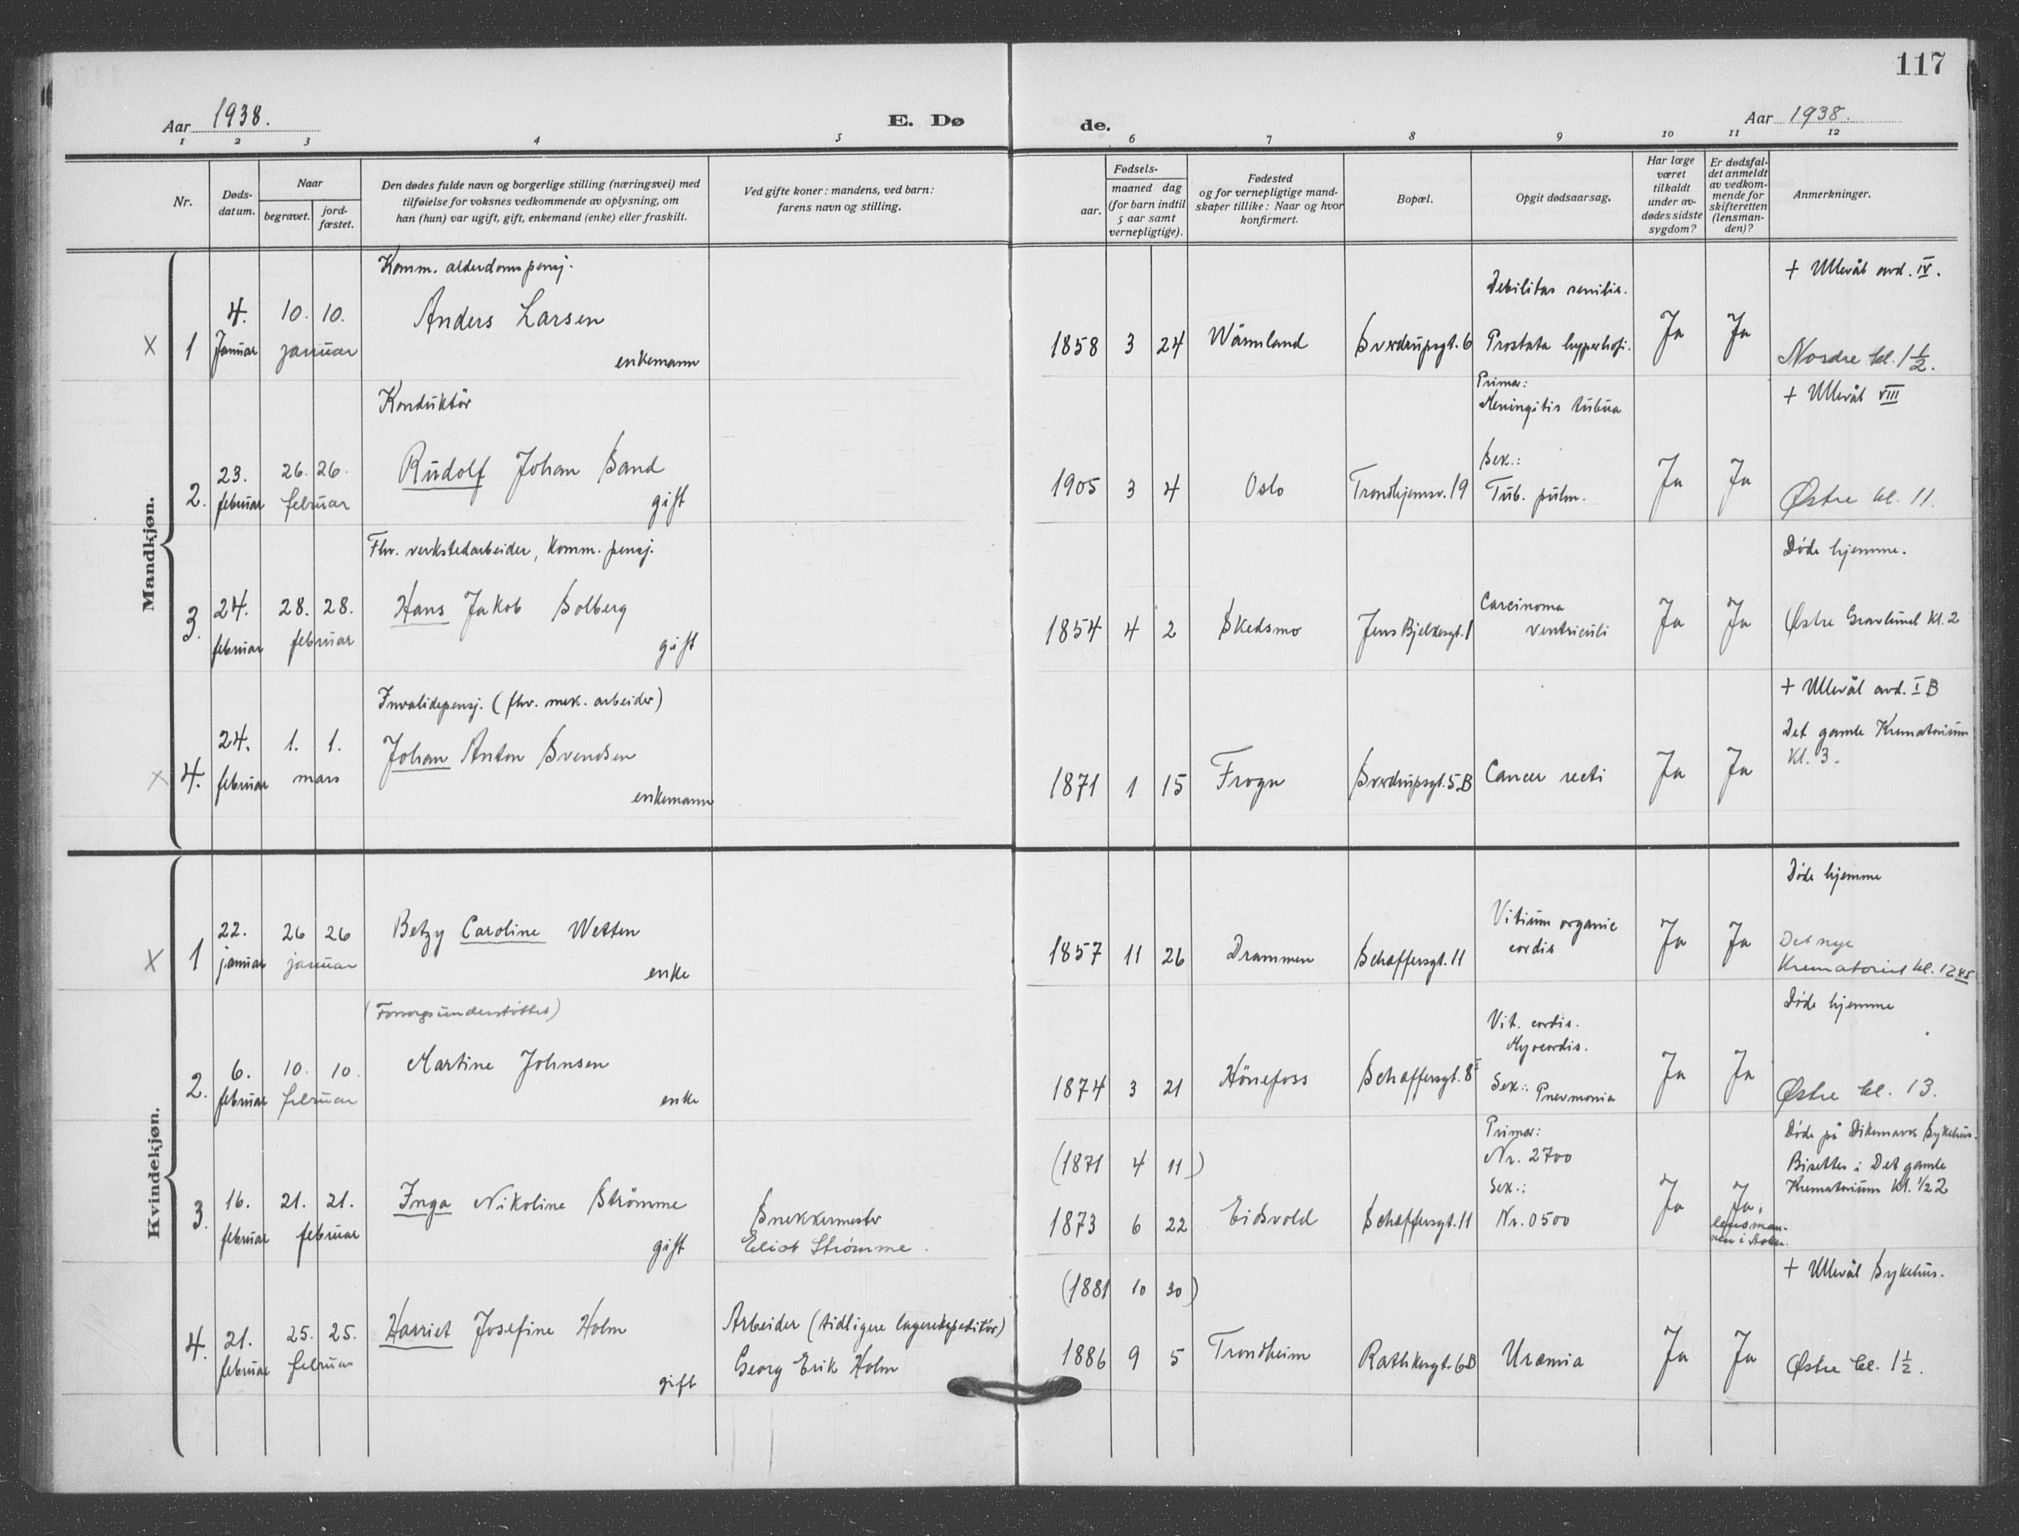 117
Aar 1938.
E. Dø
de.
Aar 1938.
1 2 3 4 5 6 7 8 9 10 11 12
Nr.
Døds-
datum.
Naar
begravet.
jord-
fæstet.
Den dødes fulde navn og borgerlige stilling (næringsvei) med
tilføielse for voksnes vedkommende av oplysning, om
han (hun) var ugift, gift, enkemand (enke) eller fraskilt.
Ved gifte koner: mandens, ved barn:
farens navn og stilling.
Fødsels-
aar.
maaned dag
(for barn indtil
5 aar samt
vernepligtige).
Fødested
og for vernepligtige mand-
skaper tillike: Naar og hvor
konfirmert.
Bopæl.
Opgit dødsaarsag.
Har læge
været
tilkaldt
under av-
dødes sidste
sygdom?
Er dødsfal-
det anmeldt
av vedkom-
mende for
skifteretten
(lensman-
den)?
Anmerkninger.
Mandkjøn.
Komm. alderdomspensj.
Debilitas senilis.
+ Ullevål avd. IV.
4. 10. 10. Anders Larsen
X 1 Januar januar enkemann
1858 3 24 Wärmland Sverdrupsgt. 6 Prostata hyperhofi. Ja Ja Nordre kl. 1 1/2.
Konduktör
Primær:
Meningitis tubua
+ Ullevål VIII
23. 26. 26. Rudolf Johan Sand
2. februar februar gift
1905 3 4 Oslo Trondhjemsv. 19
Sek.:
Tub. pulm.
Ja Ja Østre kl. 11.
Fhv. verkstedarbeider, Komm. pensj.
Døde hjemme.
24. 28. 28. Hans Jakob Solberg
3. februar februar gift
1854 4 2 Skedsmo Jens Bjelkesgt. 1
Carcinoma
ventriculi
Ja Ja Østre Gravlund kl. 2
Invalidepensj. (fhv. mek. arbeider)
+ Ullevål avd. I B
24. 1. 1. Johan Anton Svendsen
X 4. februar mars enkemann
1871 1 15 Frogn Sverdrupsgt. 5.B Cancer recti Ja Ja
Det gamle Krematorium
Kl. 3.
Kvindekjøn.
Døde hjemme
22. 26 26 Betzy Caroline Wetten
X 1 januar januar enke
1857 11 26 Drammen Schaffersgt. 11
Vitium organic
cordis
Ja Ja
Det nye
Krematoriet kl. 12 45
(Forsorgsunderstöttet)
Døde hjemme
6. 10. 10. Martine Johnsen
2. februar februar enke
1874 3 21 Hönefoss Schaffersgt. 8 I
Vit. cordis.
Myocordis.
Sek.: Pnevmonia
Ja Ja Østre kl. 13.
(1871 4 11)
Primær:
Nr. 2700
Døde på Dikemark Sykehus.
Bisettes i Det gamle
Krematorium Kl. 1/2 2
16. 21. 21. Inga Nikoline Strömme
3. februar februar gift
Snekkermester
Eliot Strömme.
1873 6 22 Eidsvold Schaffersgt. 11
Sek.:
Nr. 0500
Ja Ja,
lensman-
nen i Asker.
(1881 10 30)
+ Ullevål Sykehus.
21. 25. 25. Harriet Josefine Holm
4. februar februar gift
Arbeider (tidligere lagerekspeditör)
Georg Erik Holm
1886 9 5 Trondheim Rathkesgt. 6B Uræmia Ja Ja Østre kl. 1 1/2.